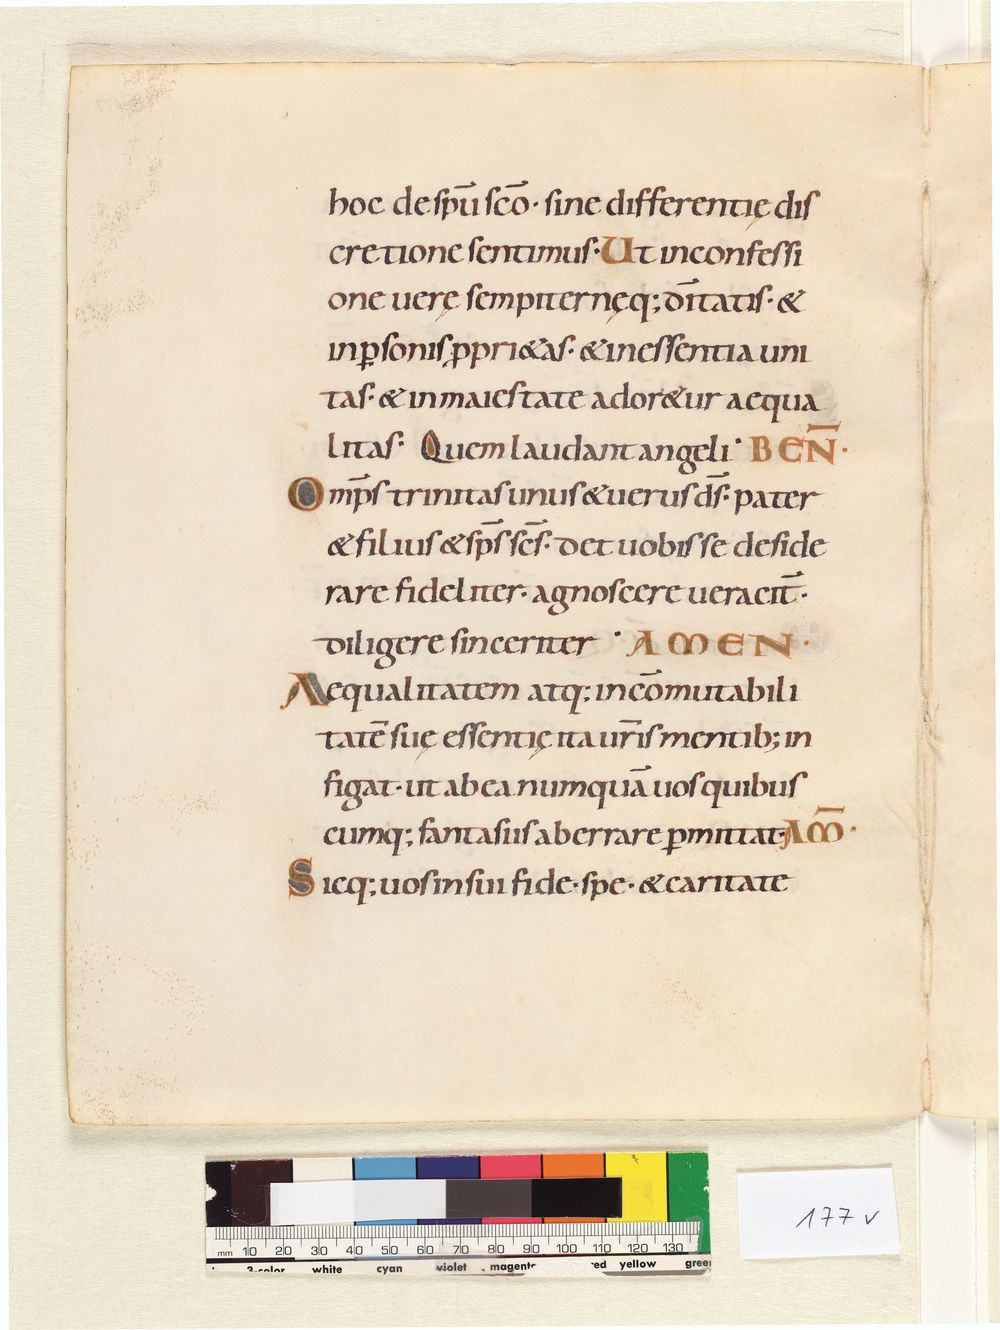 hoc de spū scō· sine differentię dis
cretione sentimus· Ut inconfessi
one uerę sempiternęq; dn̄itatis· &
inꝑsonis ꝓpri&as· & inessentia uni
tas· & inmaiestate ador&ur aequa
litas· Quem laudant angeli· BEN̄·
Omp̄s trinitas unus & uerus ds̄· pater
& filius & sp̄s sc̄s· det uobis se deside
rare fideliter· agnoscere ueracit̄·
diligere sinceriter· AMEN·
Aequalitatem atq; incōmutabili
tatē suę essentię ita ur̄is mentib; in
figat· ut ab ea numquā uos quibus
cumq; fantasiis aberrare ꝑmittat· AM̄·
Sicq; uos in sui fide· spe· & caritate
mm 10 20 30 40 50 60 70 80 90 100 110 120 130
3-color white cyan violet magenta red yellow green
177 v